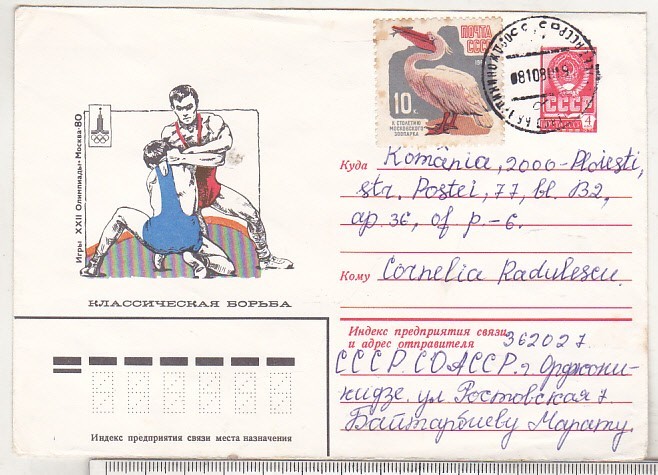 ПОЧТА
СССР
10 К
К СТОЛЕТИЮ
МОСКОВСКОГО
ЗООПАРКА
СССР
4
Игры XXII Олимпиады • Москва • 80
КЛАССИЧЕСКАЯ БОРЬБА
Куда România, 2000-Ploiești,
str. Postei, 77, bl. B2,
ap. 36, of p.-6.
Кому Cornelia Radulescu.
Индекс предприятия связи
и адрес отправителя 362027
СССР. СОАССР. г. Орджони-
кидзе. ул Ростовская 7
Байтарбиеву Марату.
Индекс предприятия связи места назначения